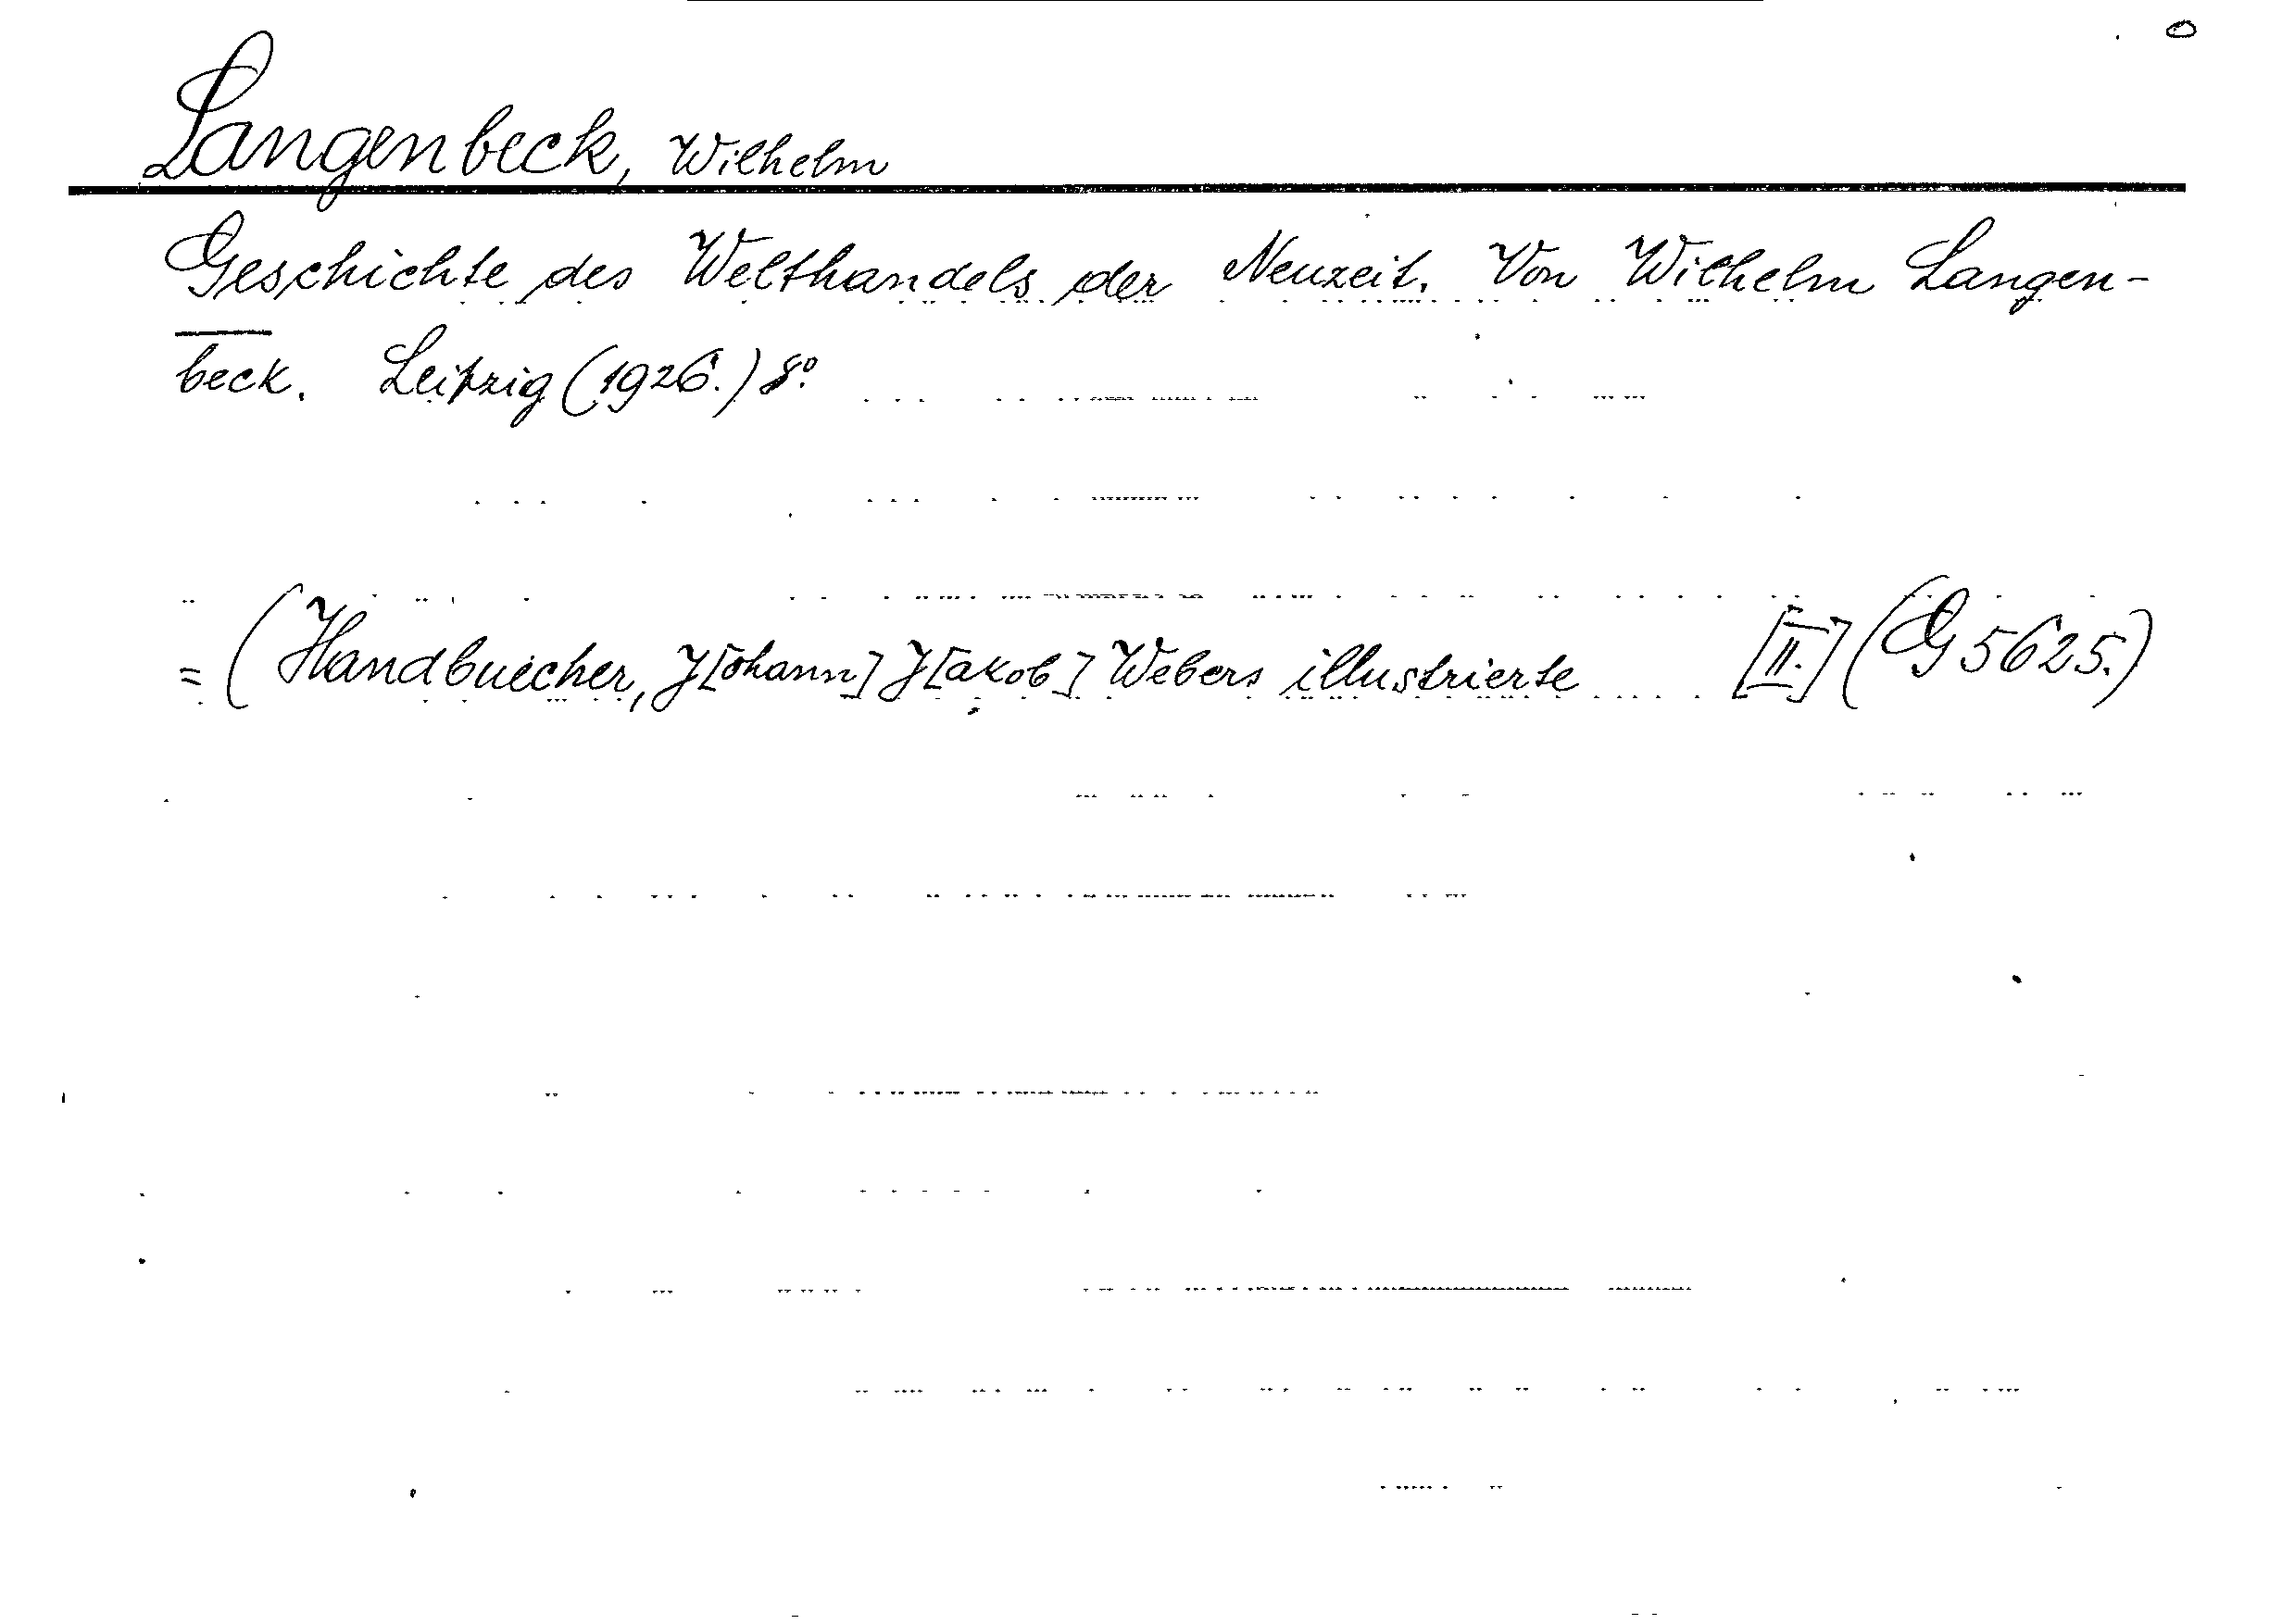 Langenbeck, Wilhelm
Geschichte des Welthandels der Neuzeit. Von Wilhelm Langen-
beck. Leipzig (1926.) 8°.
= (Handbuecher, J[ohann] J[akob] Webers illustrierte [II.] (G 5625.)